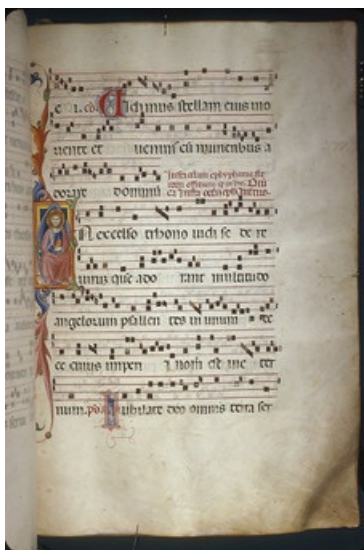 e. i. co. Vidimus stellam eius in o
riente et uenimus cū muneribus a
dorare dominū
IN excelso throno uidi se de re
uirum que ado rant multitudo
angelorum psallen tes in unum
ce cuius imperi nom̄ est in e ter
num. ps. Iubilate deo omnis terra ser